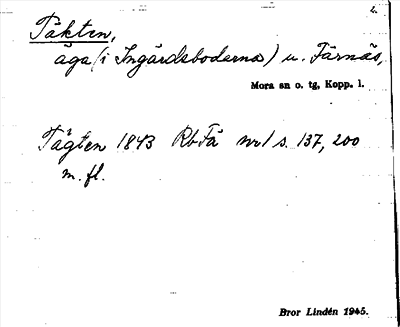 Täkten, 2.
äga (i Ingärdsboderna) u. Färnäs,
Mora sn o. tg, Kopp. l.
Tägten 1843 RbFä nr 1 s. 137, 200
m. fl.
Bror Lindén 1945.